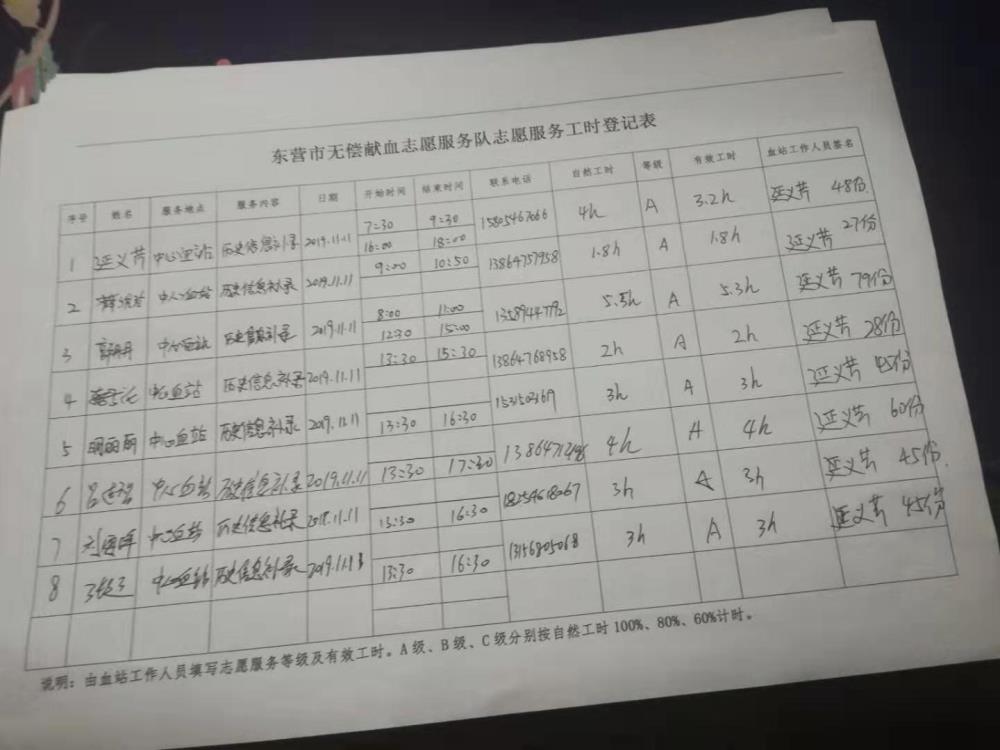 东营市无偿献血志愿服务队志愿服务工时登记表
序号 姓名 服务地点 服务内容 日期 开始时间 结束时间 联系电话 自然工时 等级 有效工时 血站工作人员签名
1 延义芳 中心血站 历史信息补录 2019.11.11 7:30 9:30 15805467066 4h A 3.2h 延义芳 48份
16:00 18:00
2 中心血站 历史信息补录 2019.11.11 9:00 10:50 13864757958 1.8h A 1.8h 延义芳 27份
3 中心血站 历史信息补录 2019.11.11 8:00 11:00 13589444792 5.5h A 5.3h 延义芳 79份
12:30 15:00
4 中心血站 历史信息补录 2019.11.11 13:30 15:30 13864768958 2h A 2h 延义芳 28份
5 中心血站 历史信息补录 2019.11.11 13:30 16:30 3h A 3h 延义芳 45份
6 中心血站 历史信息补录 2019.11.11 13:30 17:30 4h A 4h 延义芳 60份
7 中心血站 历史信息补录 13:30 16:30 18254618067 3h A 3h 延义芳 45份
8 中心血站 历史信息补录 13:30 16:30 13156805068 3h A 3h 延义芳 45份
说明：由血站工作人员填写志愿服务等级及有效工时。A级、B级、C级分别按自然工时100%、80%、60%计时。